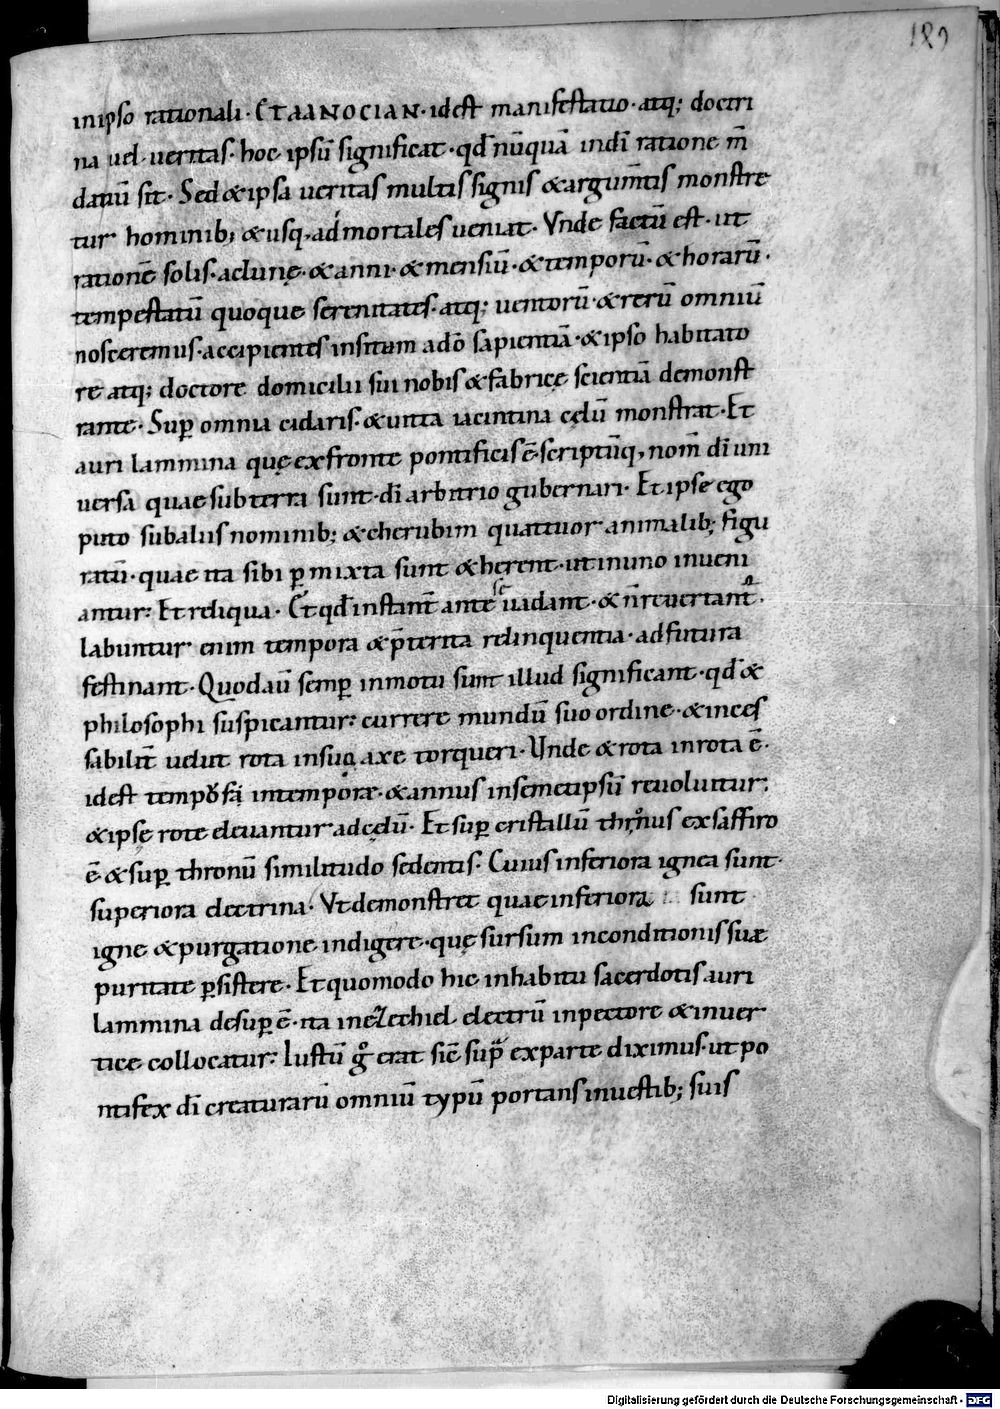 189
inipso rationali · CTAANOCIAN · idest manifestatio · atq; doctri
na uel ueritas · hoc ipsū significat · qd̄ nūquā indī ratione m̄
datiū sit · Sed & ipsa ueritas multis signis & argum̄tis monstre
tur hominib; & usq, ad mortales ueniat · Vnde factū est · ut
rationē solis · ac lunę · & anni · & mensiū · & temporū · & horarū ·
tempestatū quoque serenitates · atq; uentorū · & rerū omniū
nosceremus · accipientes insitam adō sapientiā · & ipso habitato
re atq; doctore domicilii sui nobis & fabricę scientiā demonst
rante · Suꝑ omnia cidaris · & uitta iacintina cęlū monstrat · Et
auri lammina quę ex fronte pontificis ē · scriptūq, nom̄ dī uni
uersa quae sub terra sunt · dī arbitrio gubernari · Et ipse ego
puto sub aliis nominib; & cherubim quattuor animalib; figu
ratū · quae ita sibi ꝑ mixta sunt & herent · ut in uno inueni
antur : Et reliqua · Et qd̄ instant̄ ante uadant · & n̄ reuertant̄ ·
labuntur enim tempora & p̄terita relinquentia · ad futura
festinant · Quod aū semꝑ in motu sunt illud significant · qd̄ &
philosophi suspicantur : currere mundū suo ordine · & inces
sabilit̄ uelut rota in suo axe torqueri · Unde & rota in rota ē ·
idest temp in tempore · & annus in semetipsū reuoluitur ;
& ipsę rote eleuantur ad cęlū · Et suꝑ cristallū thronus ex saffiro
ē & suꝑ thronū similitudo sedentis · Cuius inferiora ignea sunt ·
superiora electrina · Vt demonstret quae inferiora sunt
igne & purgatione indigere · quę sursum in conditionis suæ
puritate ꝑsistere · Et quomodo hic in habitu sacerdotis auri
lammina desuꝑ ē · ita in ezechiel electrū in pectore & in uer
tice collocatur : Iustū g̊ erat sic̄ supͣ ex parte diximus · ut po
ntifex dī creaturarū omniū typū portans in uestib; suis
Digitalisierung gefördert durch die Deutsche Forschungsgemeinschaft - DFG